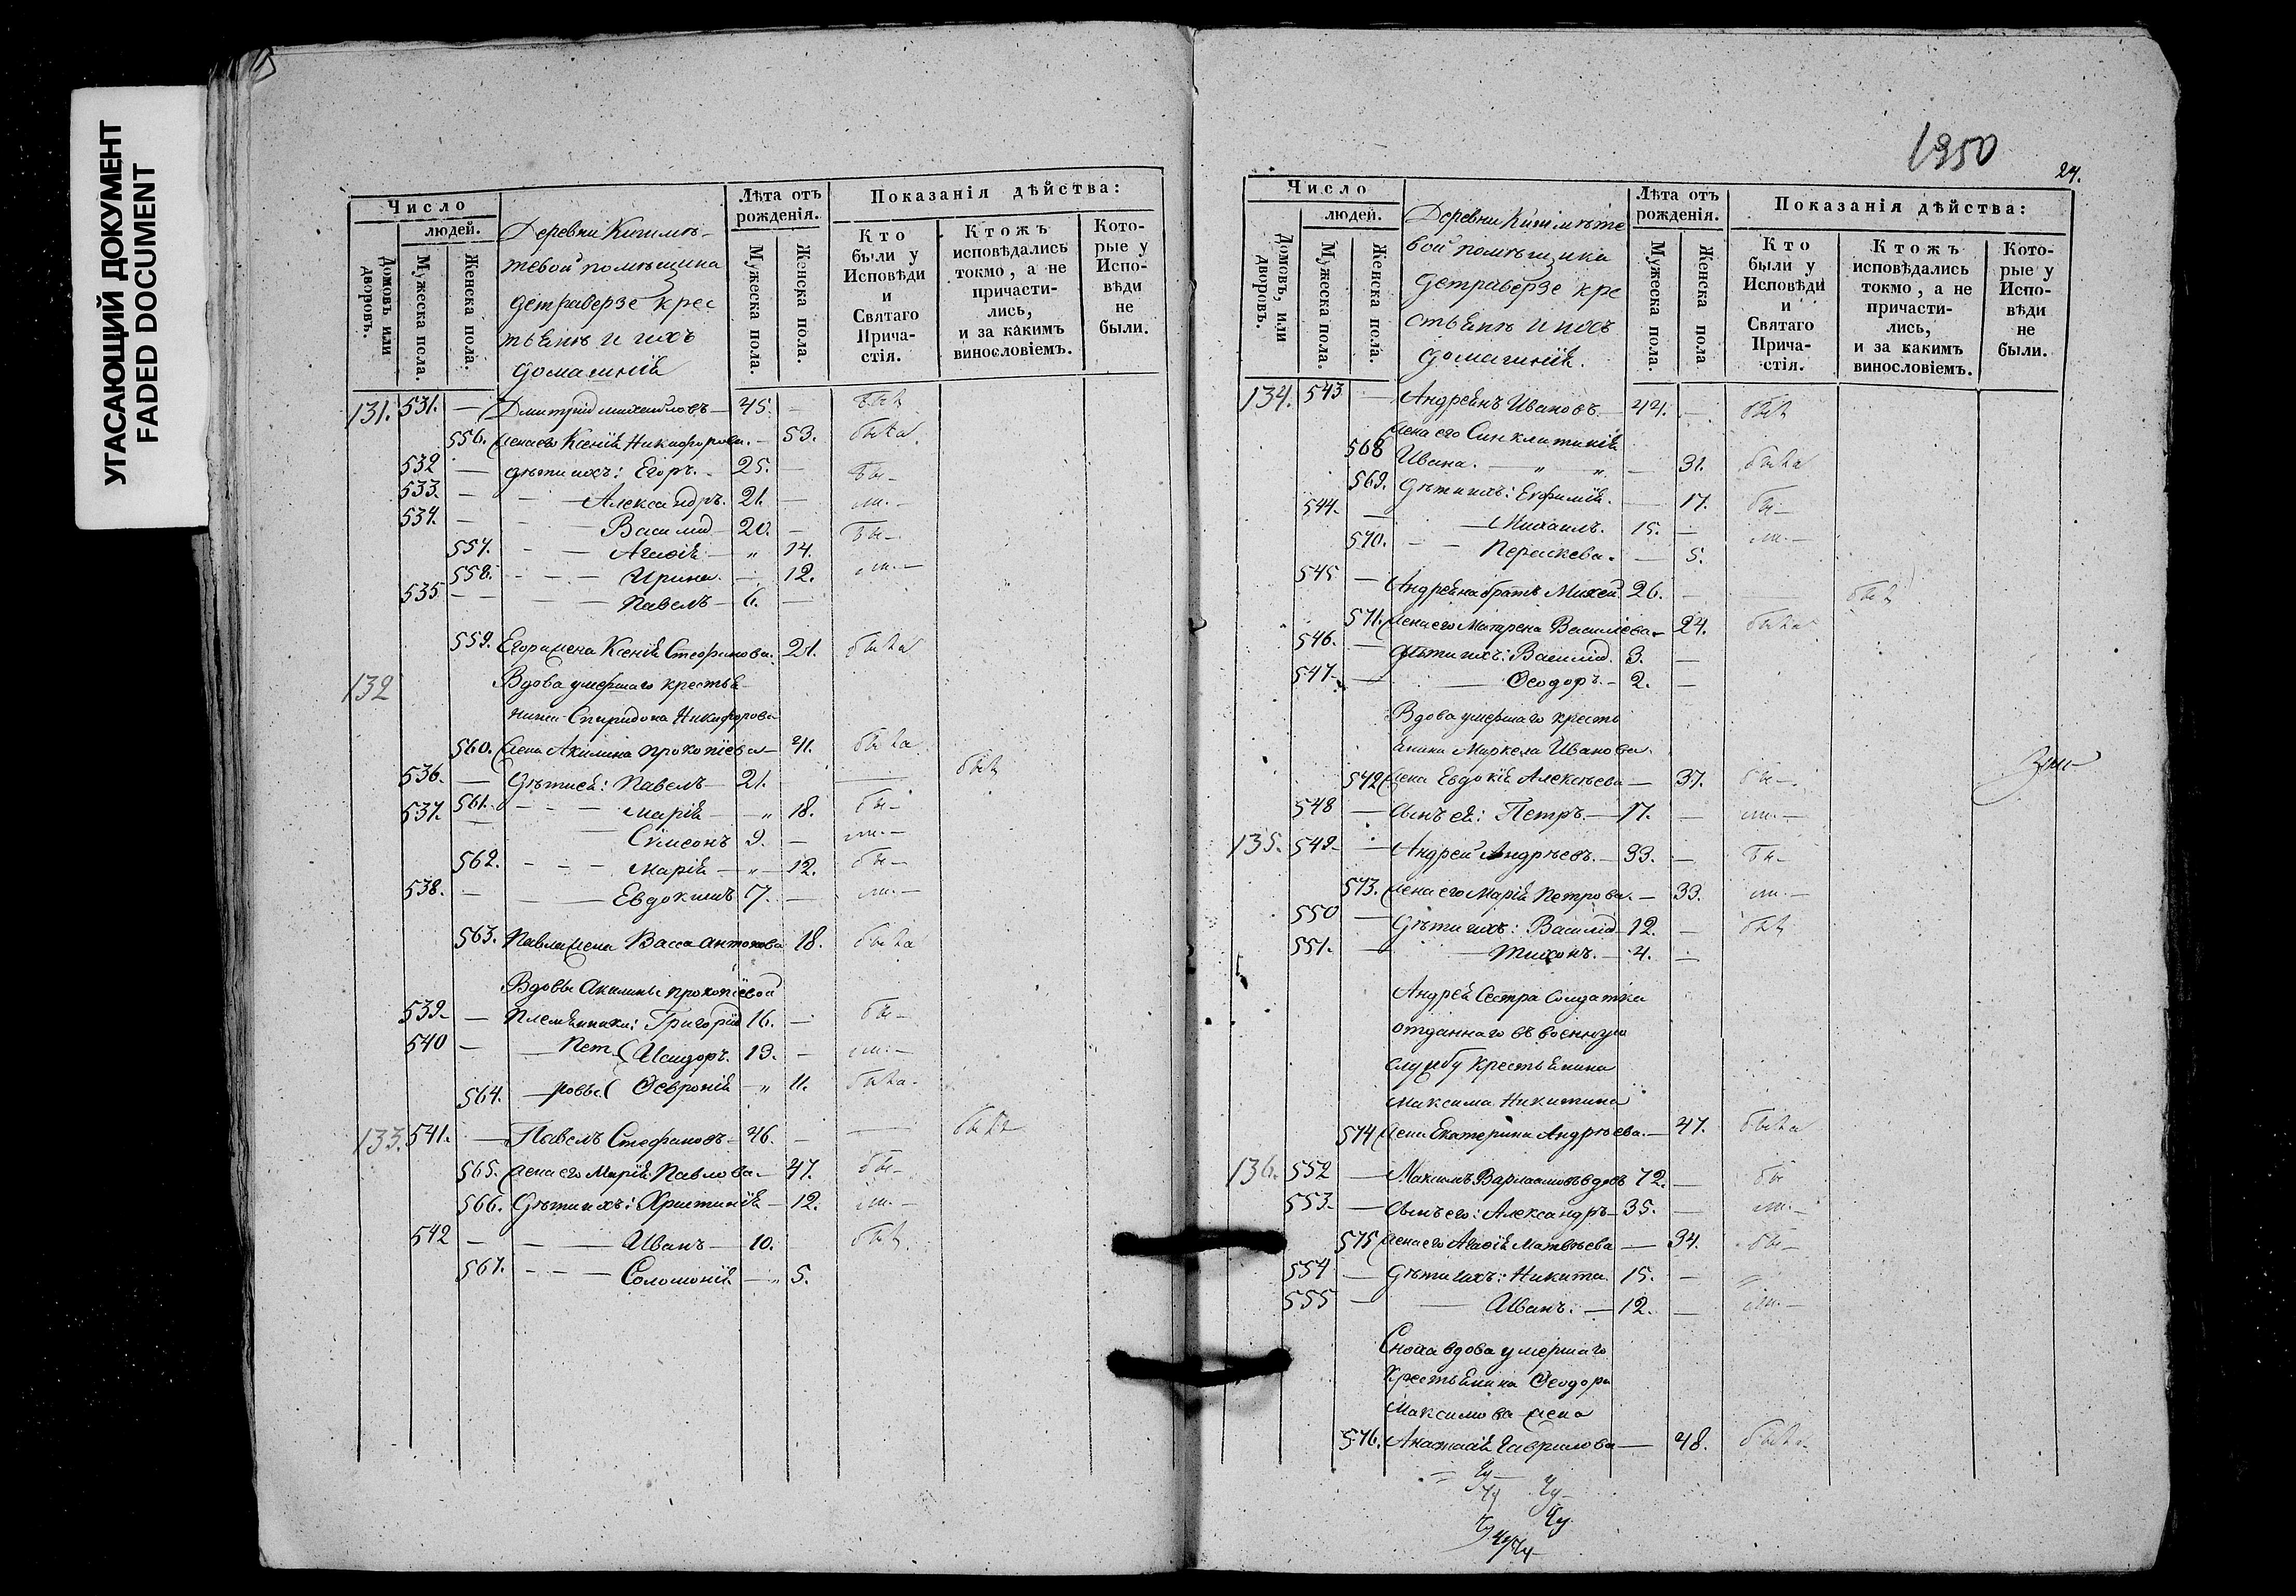 УГАСАЮЩИЙ ДОКУМЕНТ
FADED DOCUMENT
Число
людей.
Домовъ или дворовъ.
Мужеска пола.
Женска пола.
Лѣта отъ рожденія.
Мужеска пола.
Женска пола.
Показанія дѣйства:
Кто были у Исповѣди и Святаго Прича-стія.
Ктожъ исповѣдались токмо, а не причасти-лись, и за какимъ винословіемъ.
Кото-рые у Испо-вѣди не были.
Деревни
помѣщика
крес
тьянъ и ихъ
домашнія
131. 531. — Дмитрій Михайловъ — 45. — былъ
556. Жена его Ксенія Никифорова. — 53. была
532 — дѣти ихъ: Егоръ. — 25. — бы-
533. — Александръ. 21. — ли. —
534. — Василій — 20. — бы-
557. — Агафія — „ 14.
558. — Ирина. — 12. ли. —
535 — Павелъ — 6. —
559. Егора жена Ксенія Стефанова. 21. была
132 Вдова умершаго крестья-
нина Спиридона Никифорова
560. жена Акилина Прокопіева — 41. была
536. — Дѣти ей: Павелъ — 21. — былъ
561. — Марія — „ 18. бы-
537. — Симеонъ 9. — ли. —
562. — Марія — „ 12. бы-
538. — Евдокимъ 7. — ли. —
563. Павла жена Васса Антонова 18. была
Вдовы Акилины Прокопіевой
539. — Племянники: Григорій 16. — бы-
540 — Пет- Исидоръ. 13. — ли. —
564. — ровы Февронія — „ 11. была.
133. 541. — Павелъ Стефановъ — 46. — былъ
565. Жена его Марія Павлова — 47. бы-
566. Дѣти ихъ: Христинія — 12. ли. —
542 — Иванъ — 10. былъ
567. — Соломонія — „ 5.
1350
24.
Число
людей.
Домовъ, или дворовъ.
Мужеска пола.
Женска пола.
Лѣта отъ рожденія.
Мужеска пола.
Женска пола
Показанія дѣйства:
Кто были у Исповѣди и Святаго Прича-стія.
Ктожъ исповѣдались токмо, а не причасти-лись, и за какимъ винословіемъ.
Кото-рые у Испо-вѣди не были.
Деревни
вой помѣщика
кре
стьянъ и ихъ
домашнія.
134. 543 — Ивановъ. — 44. — былъ
Жена его Синклитикія
568 Ивана. — „ „ — 31. была
569. Дѣти ихъ: Евфимія. — 17. бы-
544. — Михаилъ. 15. — ли. —
570. — Перескева. — 5.
545 — Андреяна братъ Михей 26. — былъ
571. Жена его Матрена Василіева — 24. была
546. — Дѣти ихъ: Василій. 3. —
547. — Ѳеодоръ. — 2. —
Вдова умершаго кресть
янина Маркела Иванова
572 жена Евдокія Алексѣева — 37. бы-
548 — Сынъ ея: Петръ. — 17. — ли. —
135. 549. — Андрей Андрѣевъ. — 33. — бы-
573. Жена его Марія Петрова. — 33. ли. —
550 — Дѣти ихъ: Василій 12. — былъ
551. — Тихонъ. — 4. —
Андрея Сестра Солдатка
отданнаго въ военную
службу крестьянина
Максима Никитина
574 жена Екатерина Андрѣева. — 47. была
136. 552 — Максимъ Варлаамовъ вдовъ 72. — бы
553. — Сынъ его: Александръ — 35. — ли. —
575 Жена его Агафія Матвѣева — 34. бы-
554 — Дѣти ихъ: Никита 15. —
555 — Иванъ. — 12. — ли. —
Сноха вдова умершаго
Крестьянина Ѳеодора
Максимова жена
576. Анастасія Гаврилова — 48. была